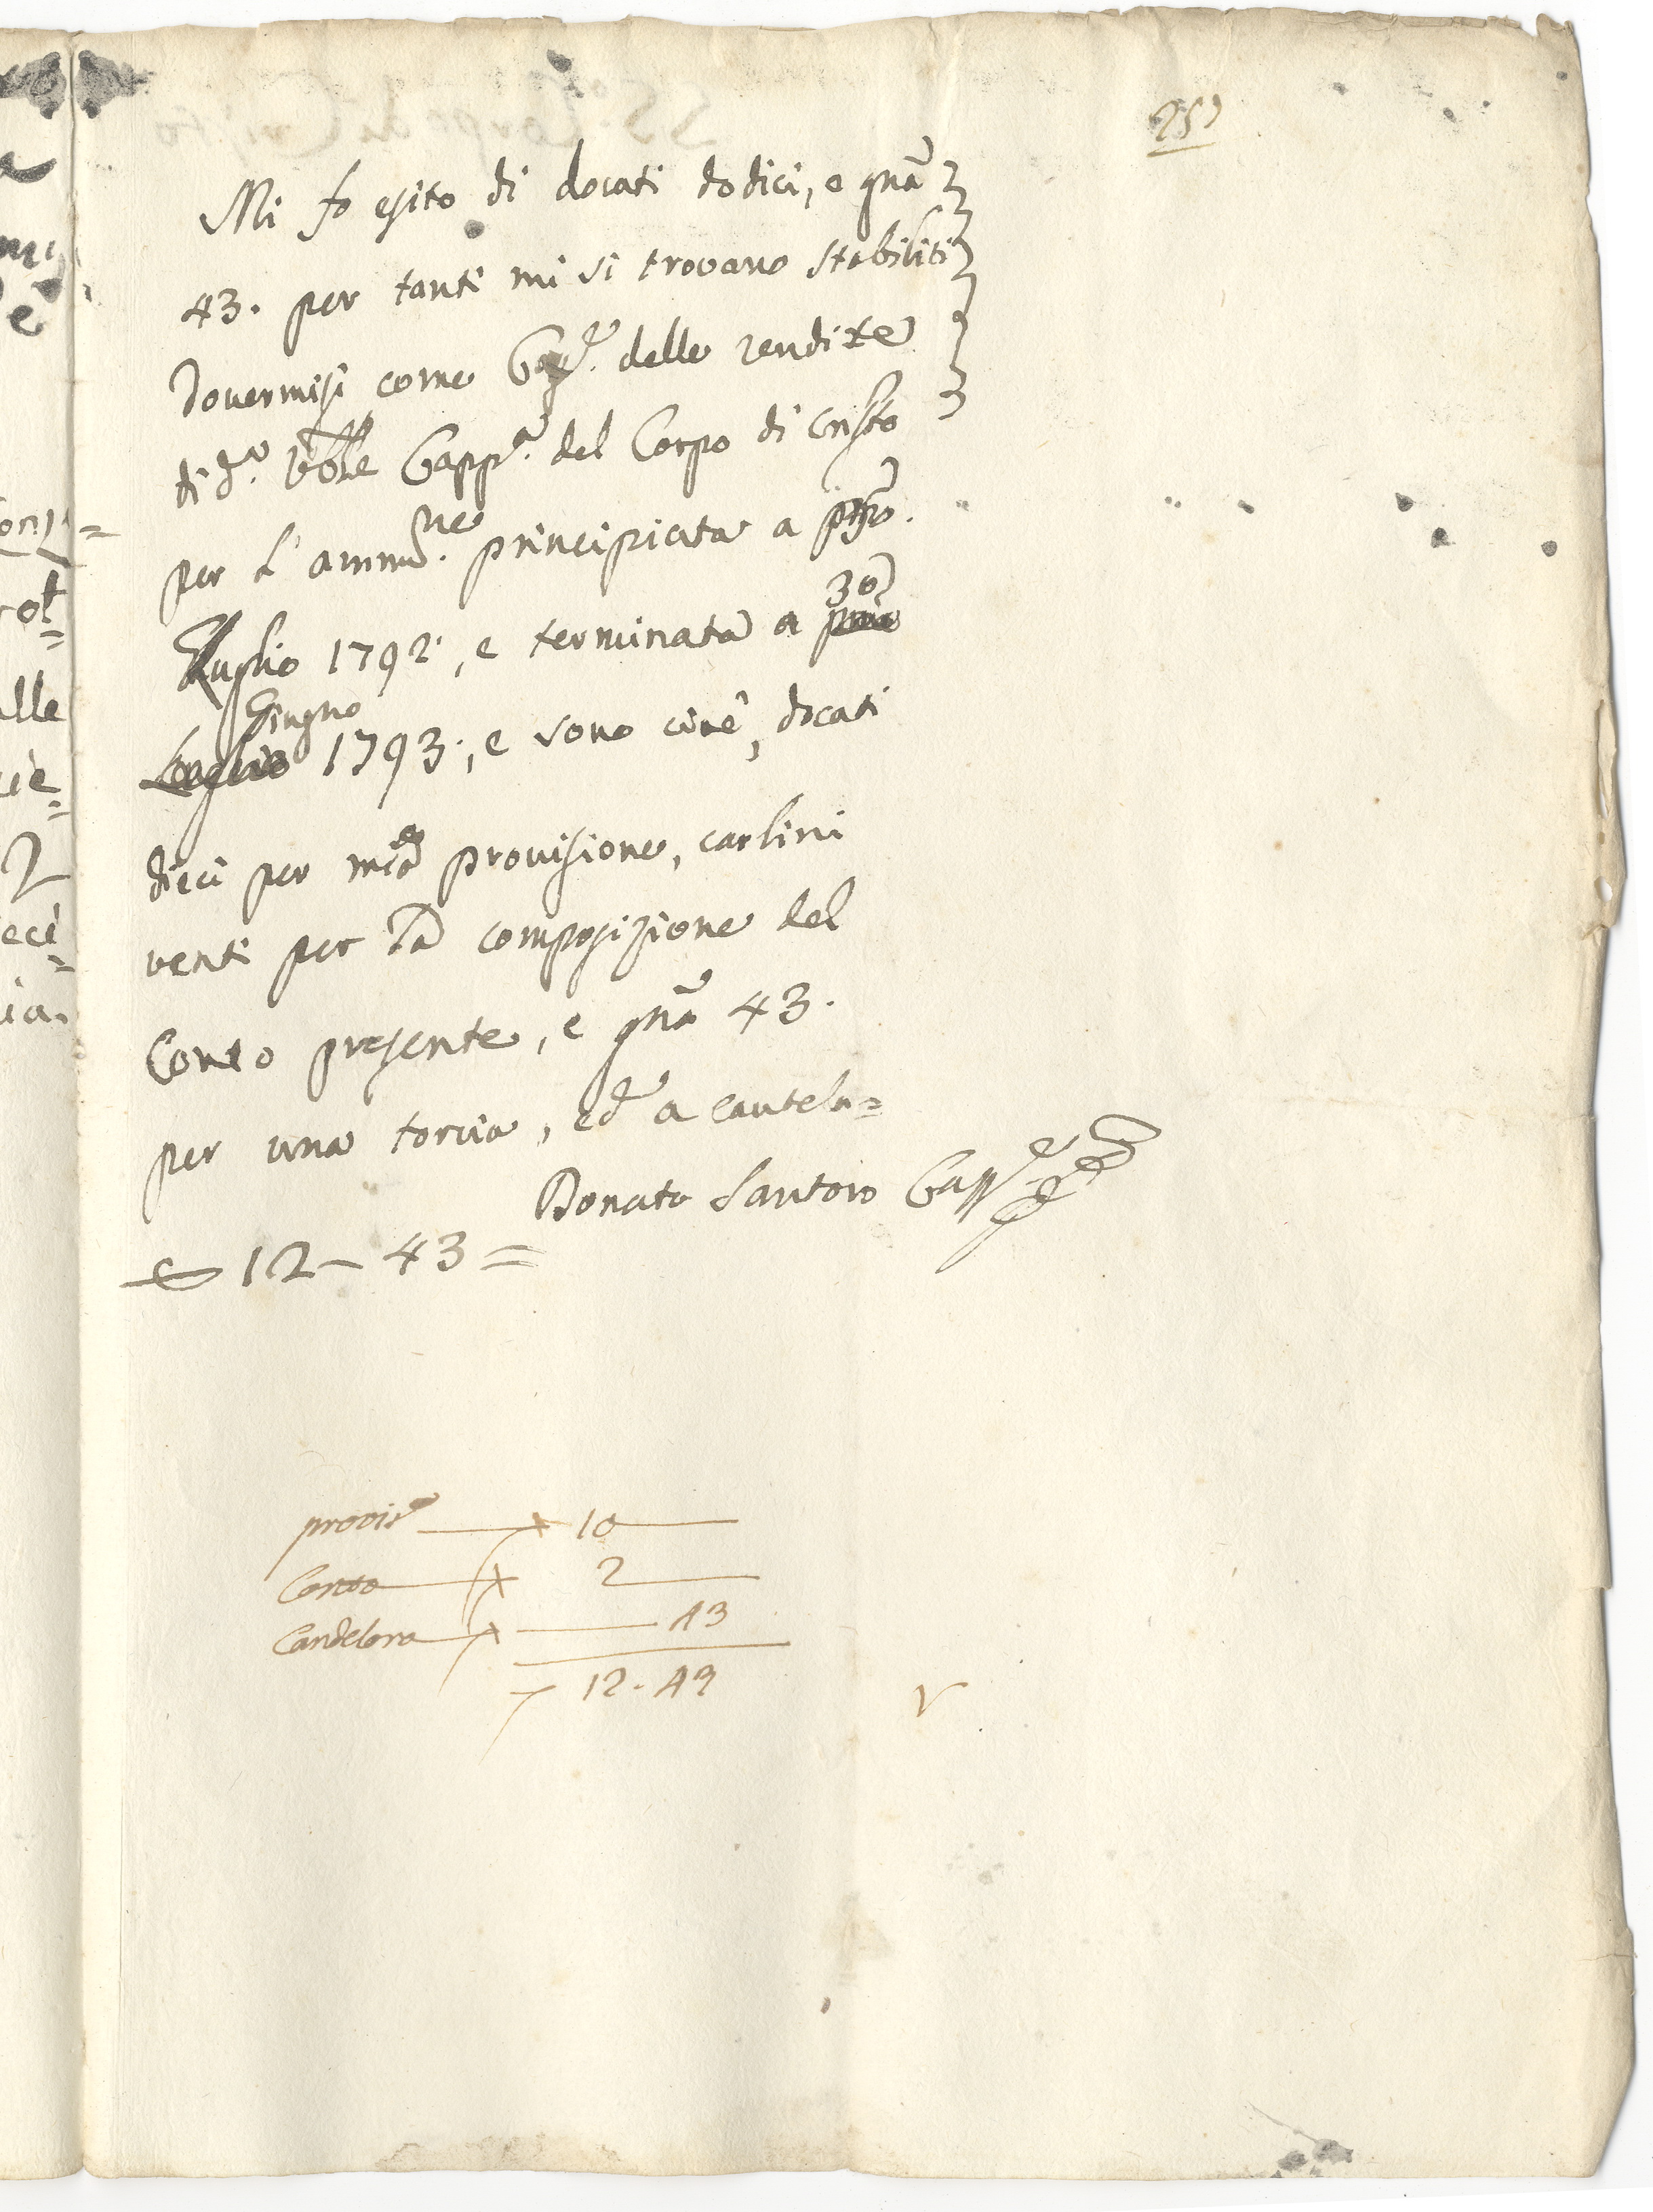 259
Mi fo esito di docati dodici, e gnã
43. per tanti mi si trovano stabiliti
dovermisi come Cass.re delle rendite
di d.a Vble Capp.a del Corpo di Cristo
per l' ammi.ne principiata a pmo.
Luglio 1792, e terminata a 30
Giugno 1793, e sono cioè, docati
dieci per mia provisione, carlini
venti per la composizione del
Conto presente, e gnã 43.
per una torcia, ed a cautela=
Donato Santoro Cass.e
12 - 43 =
provis.e 10
Conto 2
Candelora 43
12 - 43